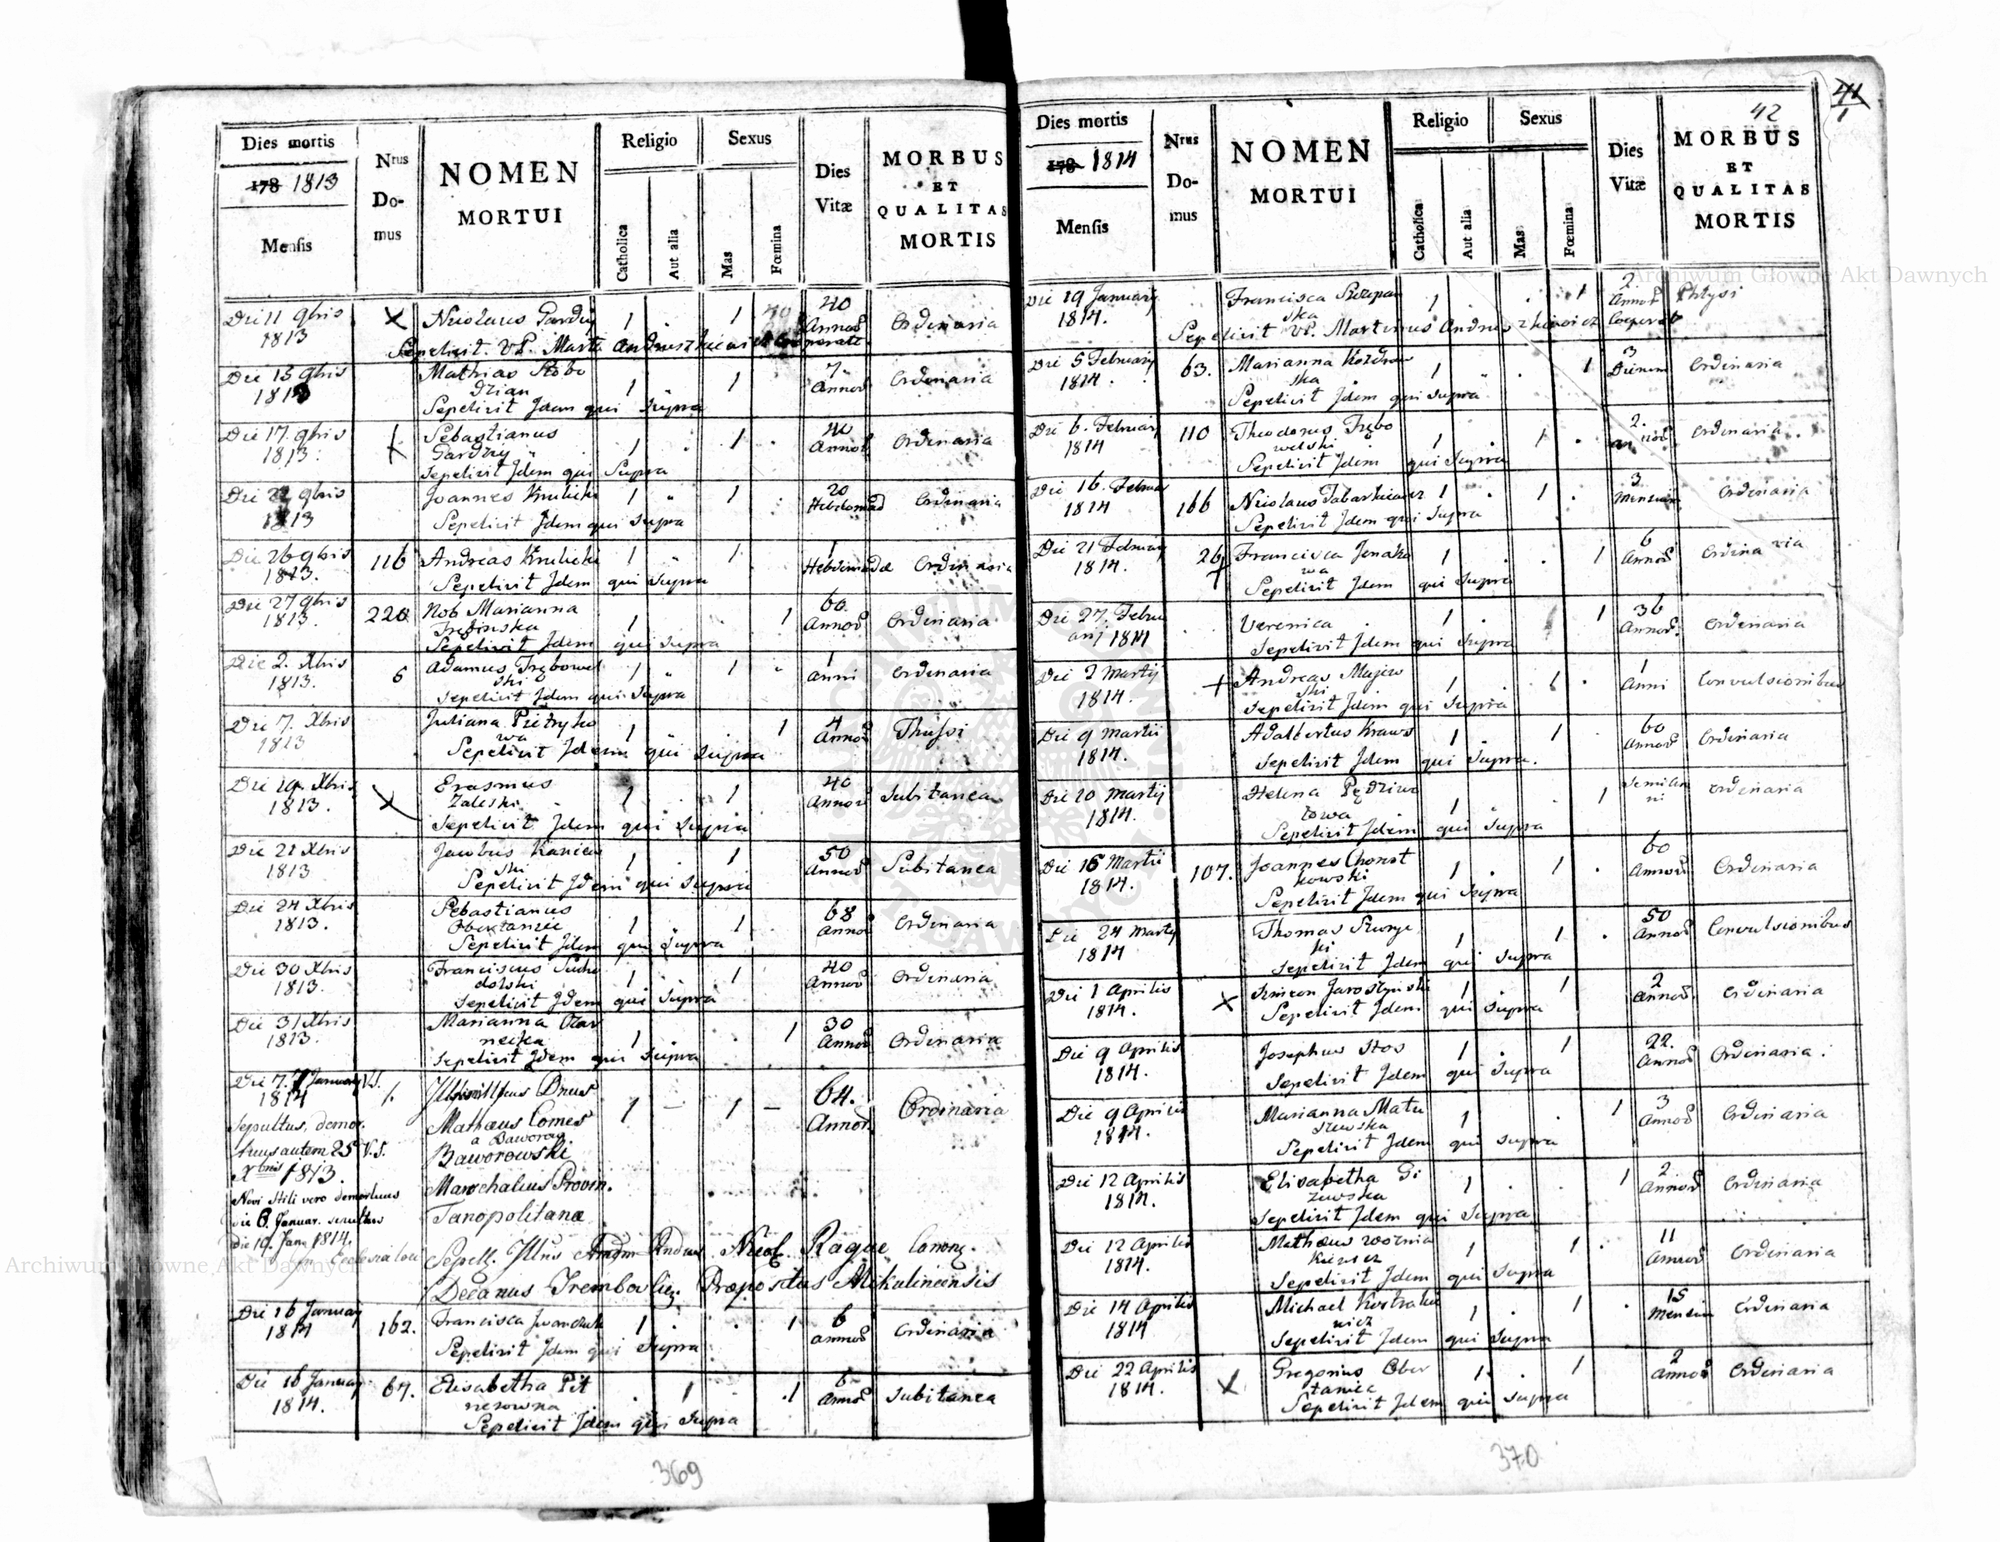 Dies mortis
178 1813
Mensis
Nrus
Do-
mus
NOMEN
MORTUI
Religio
Catholica
Aut alia
Sexus
Mas
Fœmina
Dies
Vitæ
MORBUS
ET
QUALITAS
MORTIS
Die 11 9bris
1813
Nicolaus Gardzij
1
1
40
Annor
Ordinaria
Sepelivit VP. Mart. Andruszkiewicz Cooperatt.
Die 15 9bris
1813
Mathias Stobo
dzian
1
1
7
Annor
Ordinaria
Sepelivit Idem qui Supra
Die 17 9bris
1813
Sebastianus
Gardzy
1
1
40
Annor
Ordinaria
Sepelivit Idem qui Supra
Die 22 9bris
1813
Joannes Krulicki
1
1
20
Hebdomad
Ordinaria
Sepelivit Idem qui Supra
Die 26 9bris
1813.
116
Andreas Krulicki
1
1
1
Hebdomadæ
Ordinaria
Sepelivit Idem qui Supra
Die 27 9bris
1813.
220
Nob Marianna
1
1
60.
Annor
Ordinaria
Sepelivit Idem qui Supra
Die 2. Xbris
1813.
6
Adamus Trębowel
ski
1
1
1
anni
Ordinaria
Sepelivit Idem qui Supra
Die 7. Xbris
1813
Juliana Pietryko
wa
1
1
4
Annor
Sepelivit Idem qui Supra
Die 19. Xbris
1813.
Erasmus
Zaleski
1
1
40
Annor
Subitanea
Sepelivit Idem qui Supra
Die 21 Xbris
1813
Jacobus Kaniew
ski
1
1
50
Annor
Subitanea
Sepelivit Idem qui Supra
Die 24 Xbris
1813.
Sebastianus
1
1
68
Annor
Ordinaria
Sepelivit Idem qui Supra
Die 30 Xbris
1813.
Franciscus Sucho
dolski
1
1
40
Annor
Ordinaria
Sepelivit Idem qui Supra
Die 31 Xbris
1813.
Marianna Czar
necka
1
1
30
Annor
Ordinaria
Sepelivit Idem qui Supra
Die 7. January V.S.
1814
Sepultus, demor.
tuus autem 25 V.S.
Xbris 1813.
Novi Stili vero demortuus
die 6. Januar. sepultus
die 19. Jan. 1814.
1.
Dnus
Mathæus Comes
a Baworow
Baworowski
Marchalius Provin.
Tarnopolitanæ
1
1
64.
Annor.
Ordinaria
Sepell. Illus Andreas Nicol. Raque Canong.
Decanus Trembowlien. Præpositus Mikulincensis
Die 16 January
1814
162.
Francisca Iwanczuk
1
1
6
annor
Ordinaria
Sepelivit Idem qui Supra
Die 16 January
1814.
64.
Elisabetha Pit
nerowna
1
1
6
Annor
Subitanea
Sepelivit Idem qui Supra
369
42
41
1
Dies mortis
178 1814
Mensis
Nrus
Do-
mus
NOMEN
MORTUI
Religio
Catholica
Aut alia
Sexus
Mas
Fœmina
Dies
Vitæ
MORBUS
ET
QUALITAS
MORTIS
Die 19 January
1814.
Francisca Szczepan
ska
1
1
2
Annor
Phtysi
Sepelivit VP. Martinus Andruszkiewicz Cooperat
Die 5 February
1814.
63.
Marianna Kozłow
ska
1
1
3
Dierum
Ordinaria
Sepelivit Idem qui Supra
Die 6. February
1814
110
Theodorus Trębo
welski
1
1
2.
annor
Ordinaria
Sepelivit Idem qui Supra
Die 16. Februa
1814
166
Nicolaus Tabaskiewicz
1
1
3
Mensium
Ordinaria
Sepelivit Idem qui Supra
Die 21 February
1814.
26
Francisca Jenako
wa
1
1
6
Annor
Ordinaria
Sepelivit Idem qui Supra
Die 27. Febru
arij 1814
Veronica
1
1
36
Annor.
Ordinaria
Sepelivit Idem qui Supra
Die 2 Martij
1814.
Andreas Majew
ski
1
1
1
Anni
Convulsionibus
Sepelivit Idem qui Supra
Die 9 Martii
1814.
Adalbertus Kraws
1
1
60
Annor
Ordinaria
Sepelivit Idem qui Supra.
Die 10 Martij
1814.
Helena Pędziw
towa
1
1
Semi an
ni
Ordinaria
Sepelivit Idem qui Supra
Die 16 Martii
1814.
107.
Joannes Chorost
kowski
1
1
60
Annor
Ordinaria
Sepelivit Idem qui Supra
Die 24 Martij
1814
Thomas Szurge
ki
1
1
50
Annor
Convulsionibus
Sepelivit Idem qui Supra
Die 1 Aprilis
1814.
Simeon Jarostynski
1
1
2
Annor.
Ordinaria
Sepelivit Idem qui Supra
Die 9 Aprilis
1814.
Josephus Stos
1
1
22.
Annor
Ordinaria.
Sepelivit Idem qui Supra
Die 9 Aprilis
1814.
Marianna Matu
szewska
1
1
3
Annor
Ordinaria
Sepelivit Idem qui Supra
Die 12 Aprilis
1814.
Elisabetha Gi
zewska
1
1
2
Annor
Ordinaria
Sepelivit Idem qui Supra
Die 12 Aprilis
1814.
Mathæus Wożnia
kiewicz
1
1
11
Annor
Ordinaria
Sepelivit Idem qui Supra
Die 14 Aprilis
1814
Michael Kostrakie
wicz
1
1
15
Mensium
Ordinaria
Sepelivit Idem qui Supra
Die 22 Aprilis
1814.
Gregorius Ober
taniec
1
1
2
annor
Ordinaria
Sepelivit Idem qui Supra
370
Archiwum Główne Akt Dawnych
Archiwum Główne Akt Dawnych